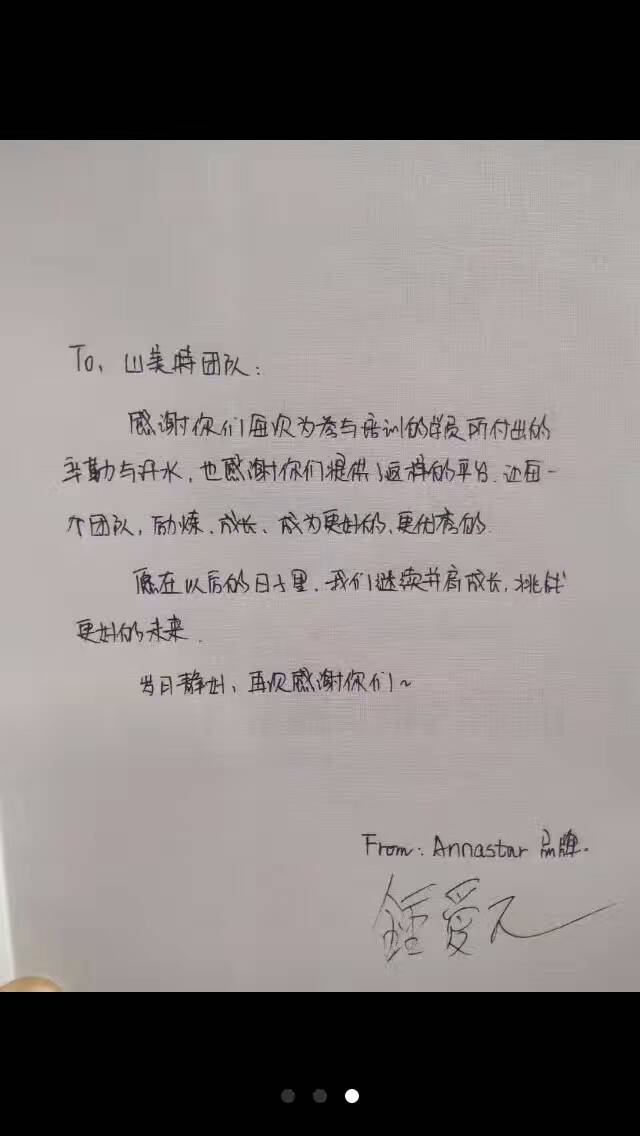 To、山美特团队：
感谢你们每次为参与培训的学员所付出的
辛勤与汗水，也感谢你们提供了这样的平台.让每一
个团队，励炼、成长、成为更好的、更优秀的.
愿在以后的日子里，我们继续并肩成长，挑战
更好的未来.
岁月静好，再次感谢你们~
From：Annastar 品牌.
鍾爱